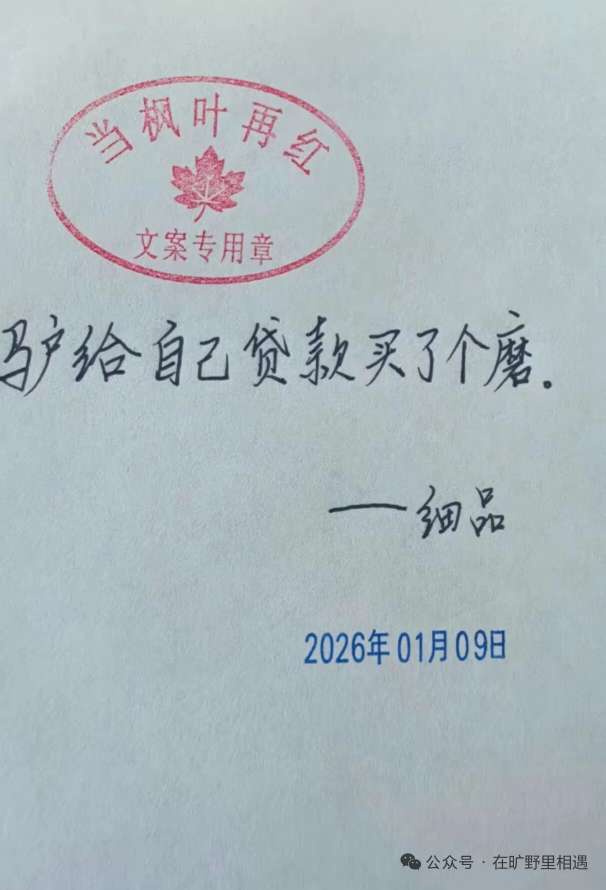 当枫叶再红
文案专用章
驴给自己贷款买了个磨.
——细品
2026年01月09日
公众号 · 在旷野里相遇